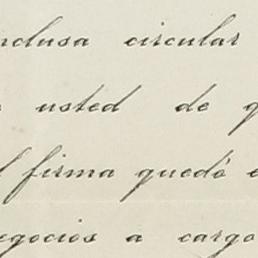 nclusa circular
usted de q
l firma quedó e
egocios a cargo